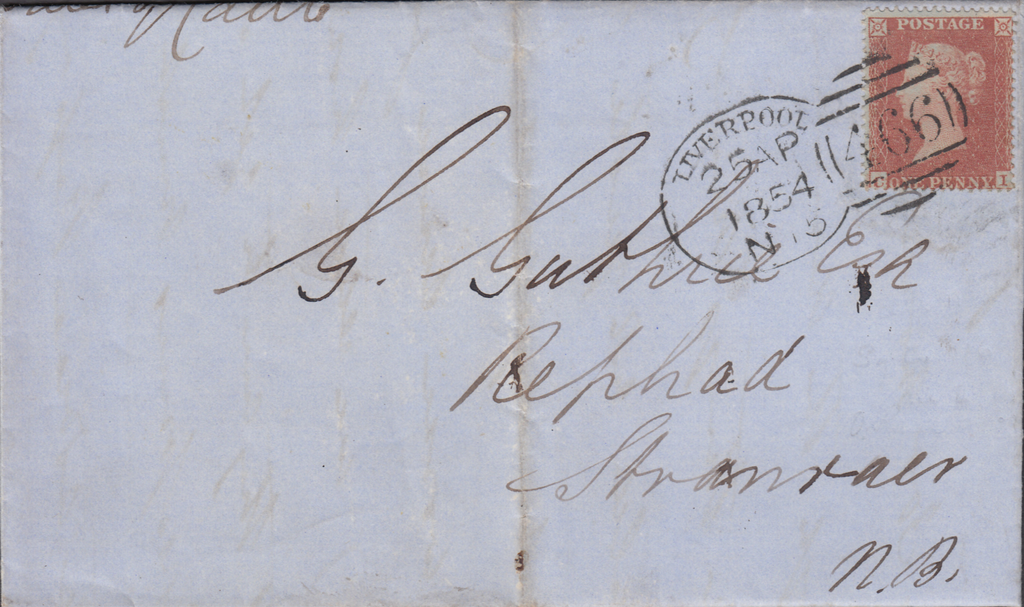 POSTAGE
LIVERPOOL
25 AP
1854
N 15
466
G ONE PENNY I
G. Guthrie Esq
Rephad
Stranraer
N.B.